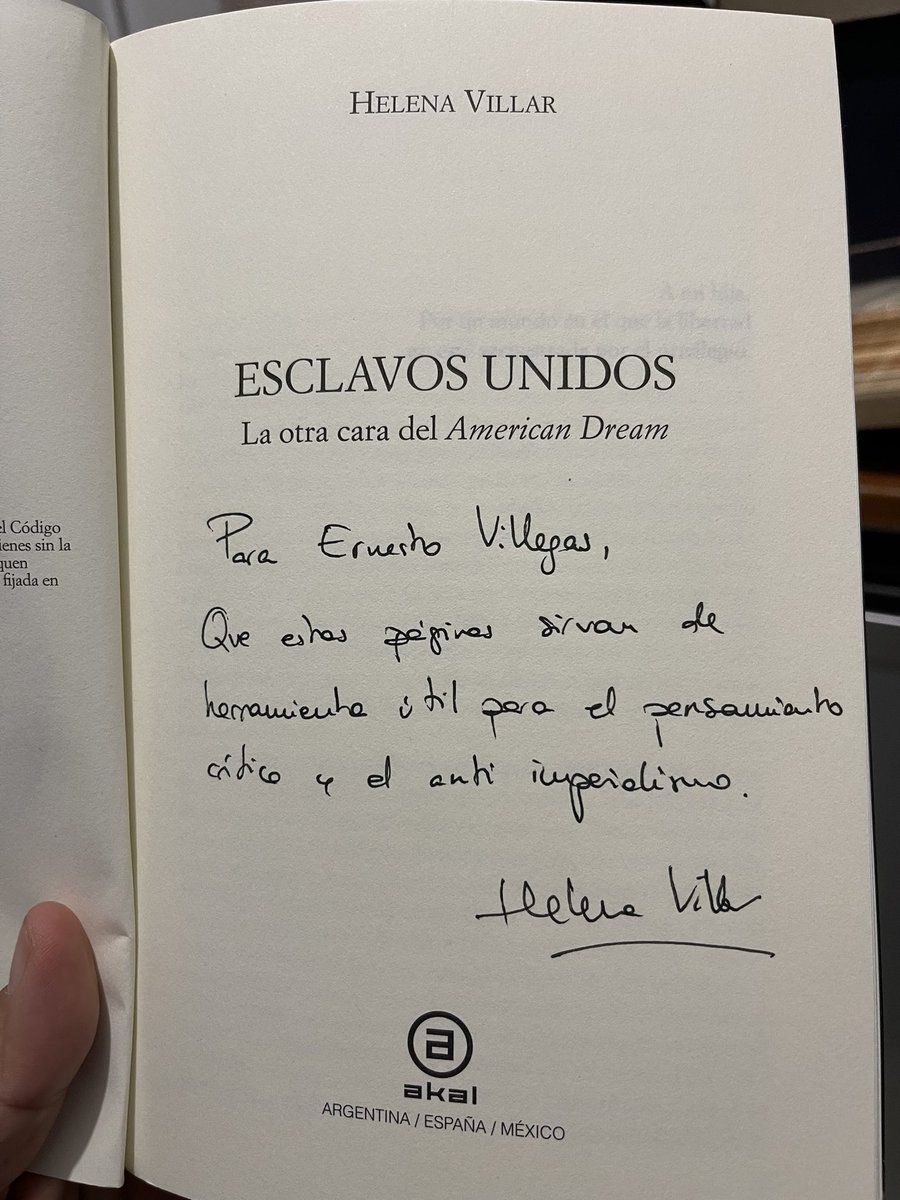 HELENA VILLAR
A mi hija.
Por un mundo en el que la libertad
ESCLAVOS UNIDOS
La otra cara del American Dream
el Código
ienes sin la
quen
fijada en
Para Ernesto Villegas,
Que estas páginas sirvan de
herramienta útil para el pensamiento
crítico y el anti imperialismo.
Helena Villar
a
akal
ARGENTINA / ESPAÑA / MÉXICO